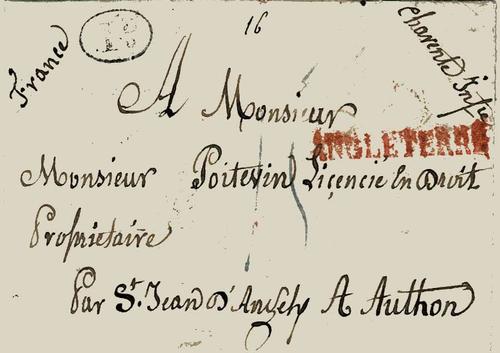 16
France
Charente Infre
A Monsieur
ANGLETERRE
Monsieur Poitevin Licencié En Droit
Proprietaire
Par St. Jean D'Angely A Authon